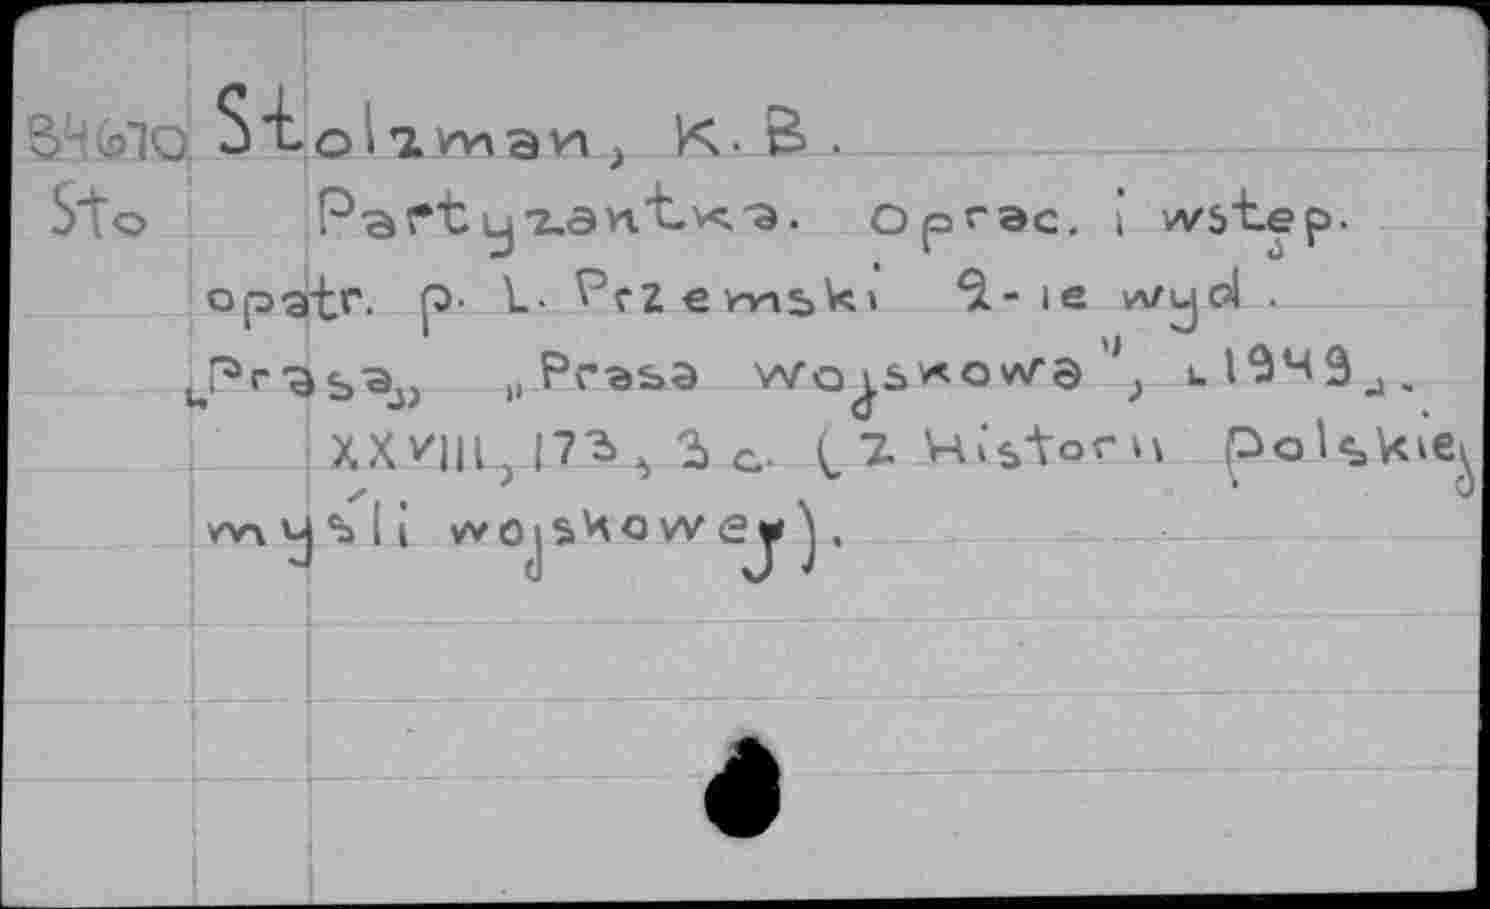 B4670 Stolzman, K. B.
Sto Partyzantka. Oprac. i wstęp.
opatr. p. L. Przemski 2-ie wyd.
[Prasa], „Prasa wojskowa", [1949].
XXVIII, 173, 3 c. (Z Historii polskiej
myśli wojskowej).